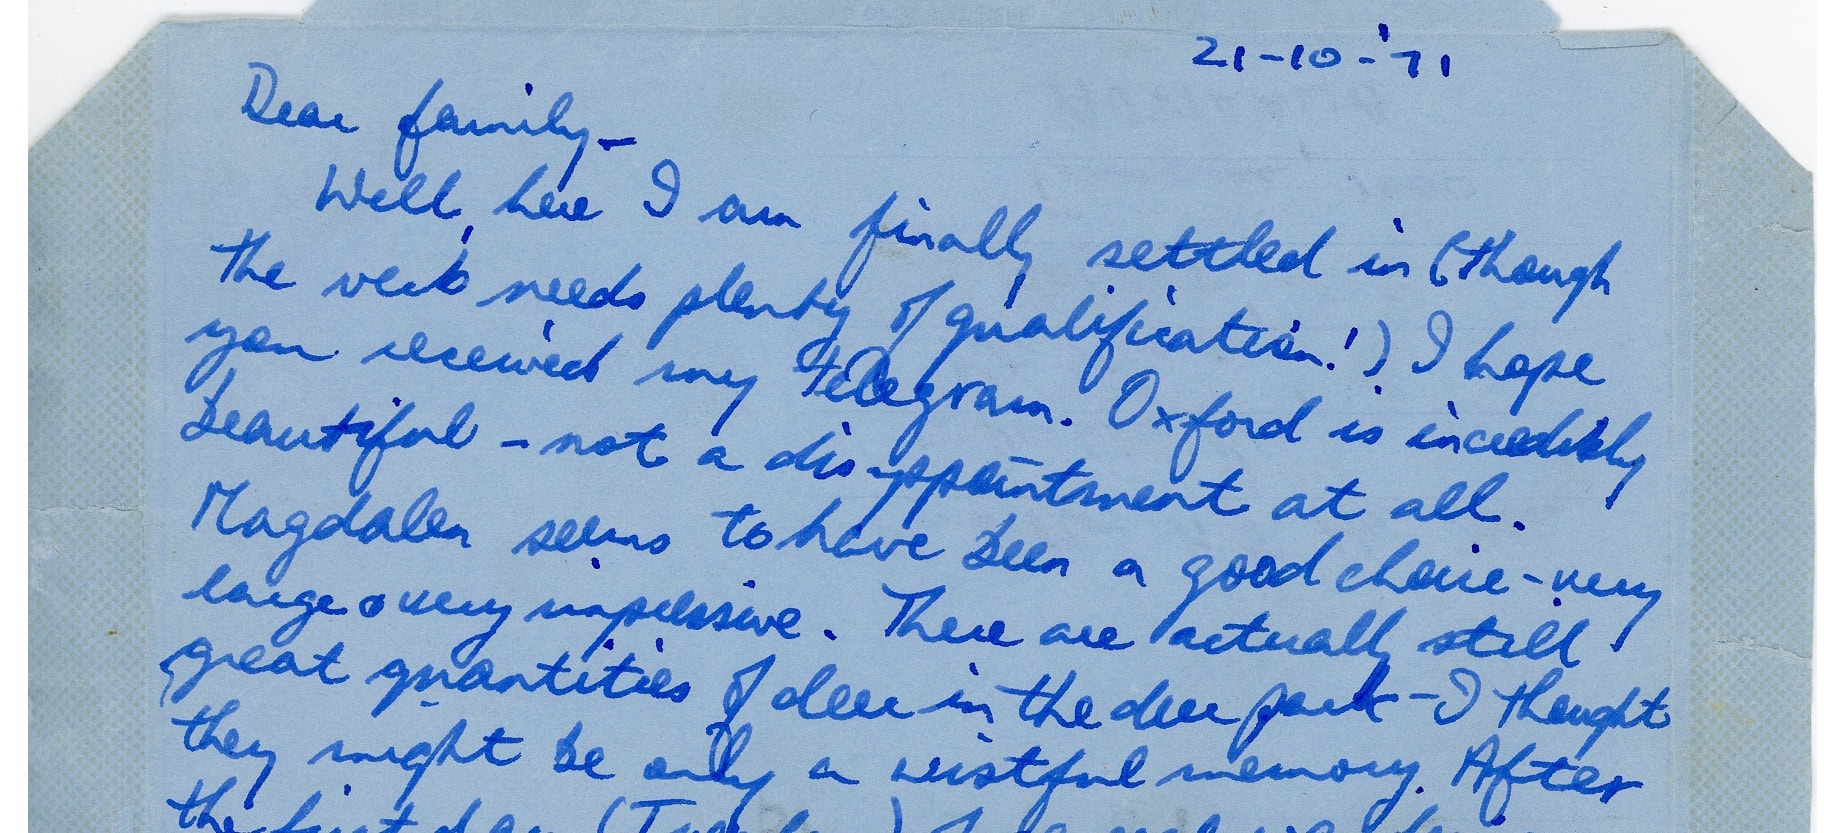 21-10-'71
Dear family-
Well, here I am finally settled in (though
the verb needs plenty of qualification!) I hope
you received my telegram. Oxford is incredibly
beautiful - not a disappointment at all.
Magdalen seems to have been a good choice - very
large & very impressive. There are actually still
great quantities of deer in the deer park - I thought
they might be only a wistful memory. After
the first day (Tuesday)